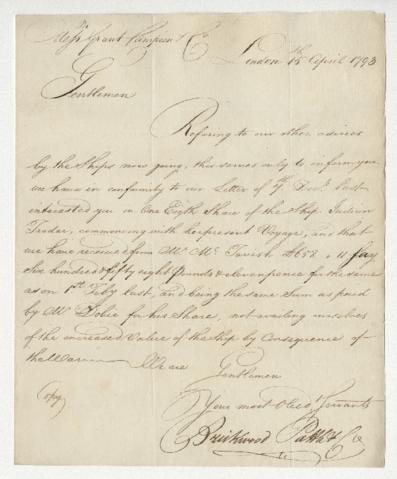 Messrs Grant Campion & Co
London 15th April 1793
Gentlemen
Refering to our other advices
by the Ships now going, this serves only to inform you
we have in conformity to our Letter of 7th Decr. last
interested you in One Eigth Share of the Ship Indian
Trader, commencing with her present Voyage, and that
we have received from Mr. Mc. Tavish £658 " 11 Say
Six hundred & fifty eight Pounds & elevenpence for the same
as on 1st Feby last, and being the same Sum as paid
by Mr Dobie for his Share, not availing ourselves
of the increased Value of the Ship by Consequence of
the War We are
Gentlemen
Copy
Your most Obedt. Servants
Brickwood Pattle & Co